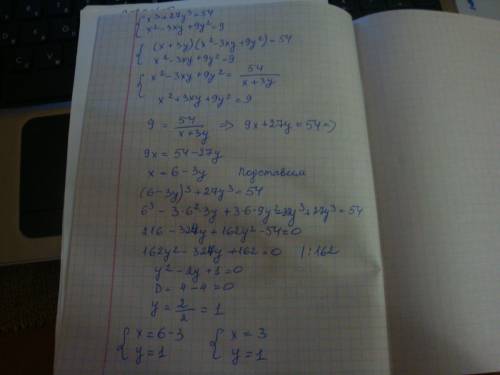 x³+27y³=54
x²-3xy+9y²=9
(x+3y)(x²-3xy+9y²)=54
x²-3xy+9y²=9
x²-3xy+9y²= 54/x+3y
x²+3xy+9y²=9
9 = 54/x+3y ⇒ 9x+27y=54⇒
9x=54-27y
x=6-3y Подставим
(6-3y)³+27y³=54
6³-3·6²·3y+3·6·9y²-27y³+27y³=54
216-324y+162y²-54=0
162y²-324y+162=0 |:162
y²-2y+1=0
D=4-4=0
y=2/2=1
{x=6-3 {x=3
{y=1 {y=1